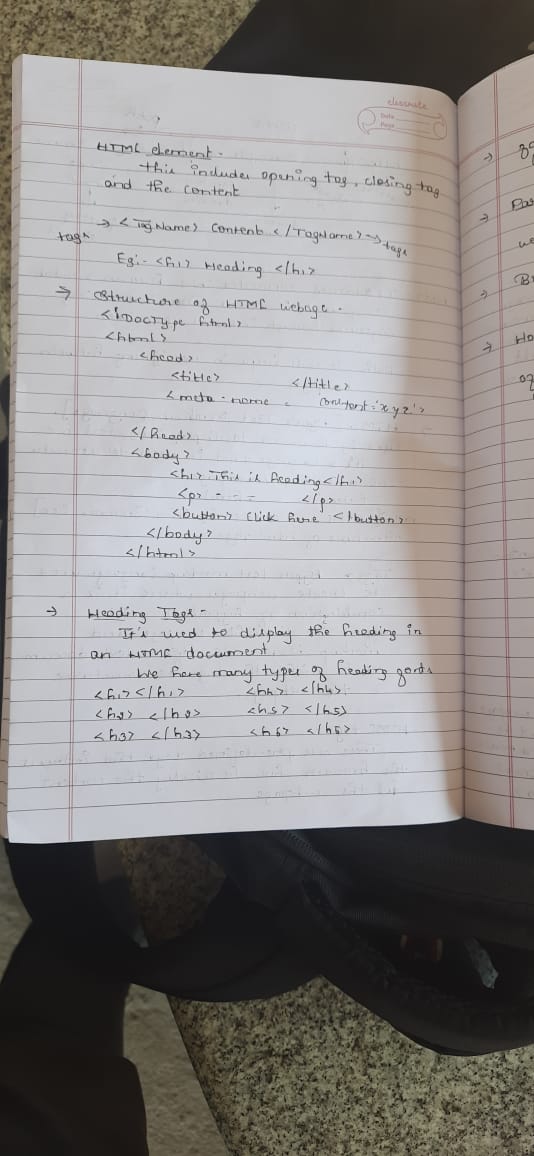 classmate
Date
Page
HTML element -
this includes opening tag, closing tag
and the content
→ <TagName> Content </TagName> → tags
tags
Eg:- <h1> Heading </h1>
→ Structure of HTML webage.
<!DOCType html>
<html>
<head>
<title> </title>
<meta - name = content='xyz'>
</head>
<body>
<h1> This is heading </h1>
<p> - - - </p>
<button> Click here </button>
</body>
</html>
→ Heading Tags -
It's used to display the heading in
an HTML document.
We have many types of heading
<h1> </h1> <h4> </h4>
<h2> </h2> <h5> </h5>
<h3> </h3> <h6> </h6>
→
→
we
→
→ Ho